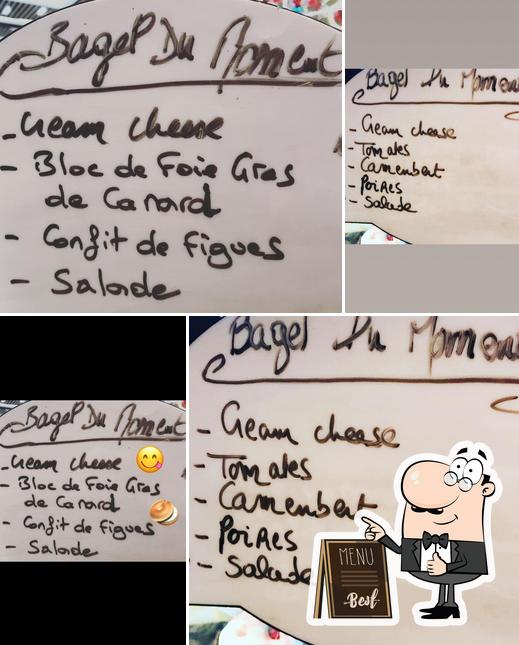 Bagel Du Moment
- Cream cheese
- Bloc de Foie Gras
de Canard
- Confit de Figues
- Salade
Bagel Du Moment
- Cream cheese
- Tomates
- Camembert
- Poires
- Salade
Bagel Du Moment
- Cream cheese
- Bloc de Foie Gras
de Canard
- Confit de Figues
- Salade
Bagel Du Moment
- Cream cheese
- Tomates
- Camembert
- Poires
- Salade
MENU
Best